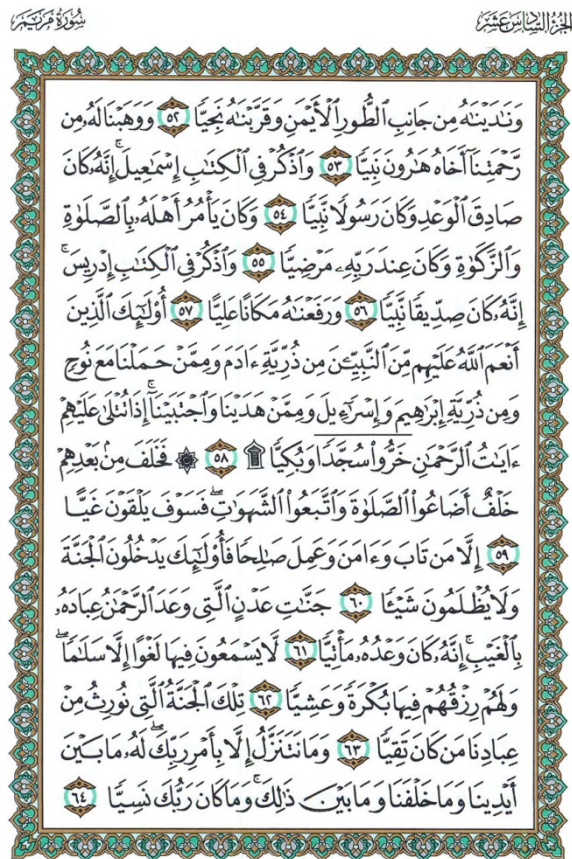 الجزء السادس عشر
سورة مريم
وَنَٰدَيْنَٰهُ مِن جَانِبِ ٱلطُّورِ ٱلْأَيْمَنِ وَقَرَّبْنَٰهُ نَجِيًّا ٥٢ وَوَهَبْنَا لَهُۥ مِن
رَّحْمَتِنَآ أَخَاهُ هَٰرُونَ نَبِيًّا ٥٣ وَٱذْكُرْ فِى ٱلْكِتَٰبِ إِسْمَٰعِيلَ ۚ إِنَّهُۥ كَانَ
صَادِقَ ٱلْوَعْدِ وَكَانَ رَسُولًا نَّبِيًّا ٥٤ وَكَانَ يَأْمُرُ أَهْلَهُۥ بِٱلصَّلَوٰةِ
وَٱلزَّكَوٰةِ وَكَانَ عِندَ رَبِّهِۦ مَرْضِيًّا ٥٥ وَٱذْكُرْ فِى ٱلْكِتَٰبِ إِدْرِيسَ ۚ
إِنَّهُۥ كَانَ صِدِّيقًا نَّبِيًّا ٥٦ وَرَفَعْنَٰهُ مَكَانًا عَلِيًّا ٥٧ أُو۟لَٰٓئِكَ ٱلَّذِينَ
أَنْعَمَ ٱللَّهُ عَلَيْهِم مِّنَ ٱلنَّبِيِّـۧنَ مِن ذُرِّيَّةِ ءَادَمَ وَمِمَّنْ حَمَلْنَا مَعَ نُوحٍ
وَمِن ذُرِّيَّةِ إِبْرَٰهِيمَ وَإِسْرَٰٓءِيلَ وَمِمَّنْ هَدَيْنَا وَٱجْتَبَيْنَآ ۚ إِذَا تُتْلَىٰ عَلَيْهِمْ
ءَايَٰتُ ٱلرَّحْمَٰنِ خَرُّوا۟ سُجَّدًا وَبُكِيًّا ۩ ٥٨ ۞ فَخَلَفَ مِنۢ بَعْدِهِمْ
خَلْفٌ أَضَاعُوا۟ ٱلصَّلَوٰةَ وَٱتَّبَعُوا۟ ٱلشَّهَوَٰتِ ۖ فَسَوْفَ يَلْقَوْنَ غَيًّا
٥٩ إِلَّا مَن تَابَ وَءَامَنَ وَعَمِلَ صَٰلِحًا فَأُو۟لَٰٓئِكَ يَدْخُلُونَ ٱلْجَنَّةَ
وَلَا يُظْلَمُونَ شَيْـًٔا ٦٠ جَنَّٰتِ عَدْنٍ ٱلَّتِى وَعَدَ ٱلرَّحْمَٰنُ عِبَادَهُۥ
بِٱلْغَيْبِ ۚ إِنَّهُۥ كَانَ وَعْدُهُۥ مَأْتِيًّا ٦١ لَّا يَسْمَعُونَ فِيهَا لَغْوًا إِلَّا سَلَٰمًا ۖ
وَلَهُمْ رِزْقُهُمْ فِيهَا بُكْرَةً وَعَشِيًّا ٦٢ تِلْكَ ٱلْجَنَّةُ ٱلَّتِى نُورِثُ مِنْ
عِبَادِنَا مَن كَانَ تَقِيًّا ٦٣ وَمَا نَتَنَزَّلُ إِلَّا بِأَمْرِ رَبِّكَ ۖ لَهُۥ مَا بَيْنَ
أَيْدِينَا وَمَا خَلْفَنَا وَمَا بَيْنَ ذَٰلِكَ ۚ وَمَا كَانَ رَبُّكَ نَسِيًّا ٦٤